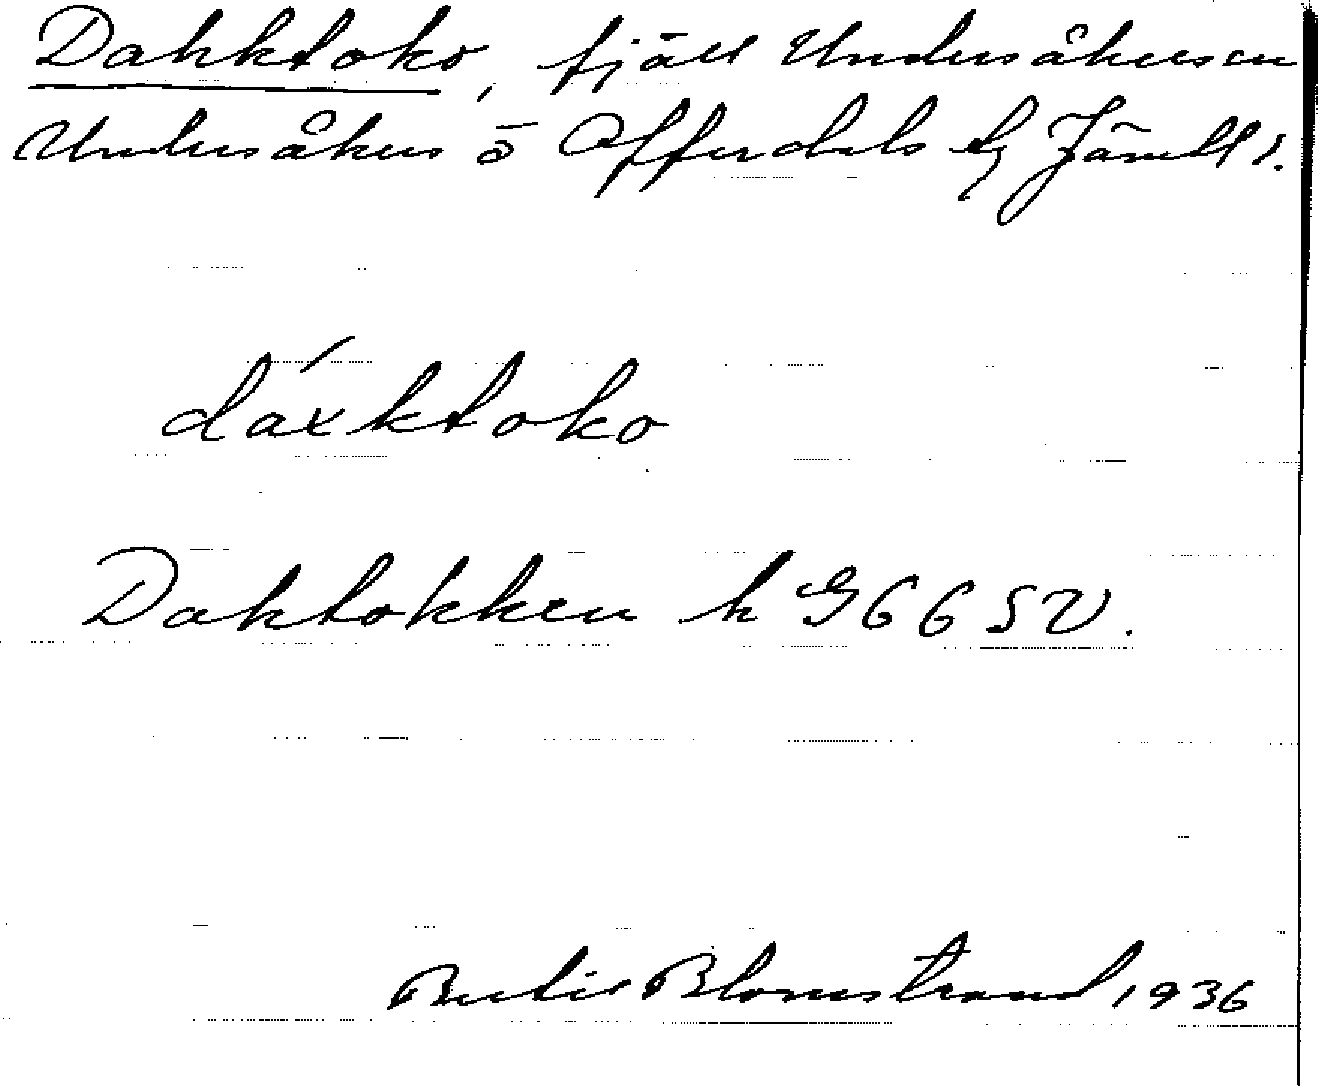 Dahktoko, fjäll Undersåkers sn
Undersåkers o Offerdals tg Jämtl l.
dáxktoko
Daktokken k G66SV.
Bertil Blomstrand 1936